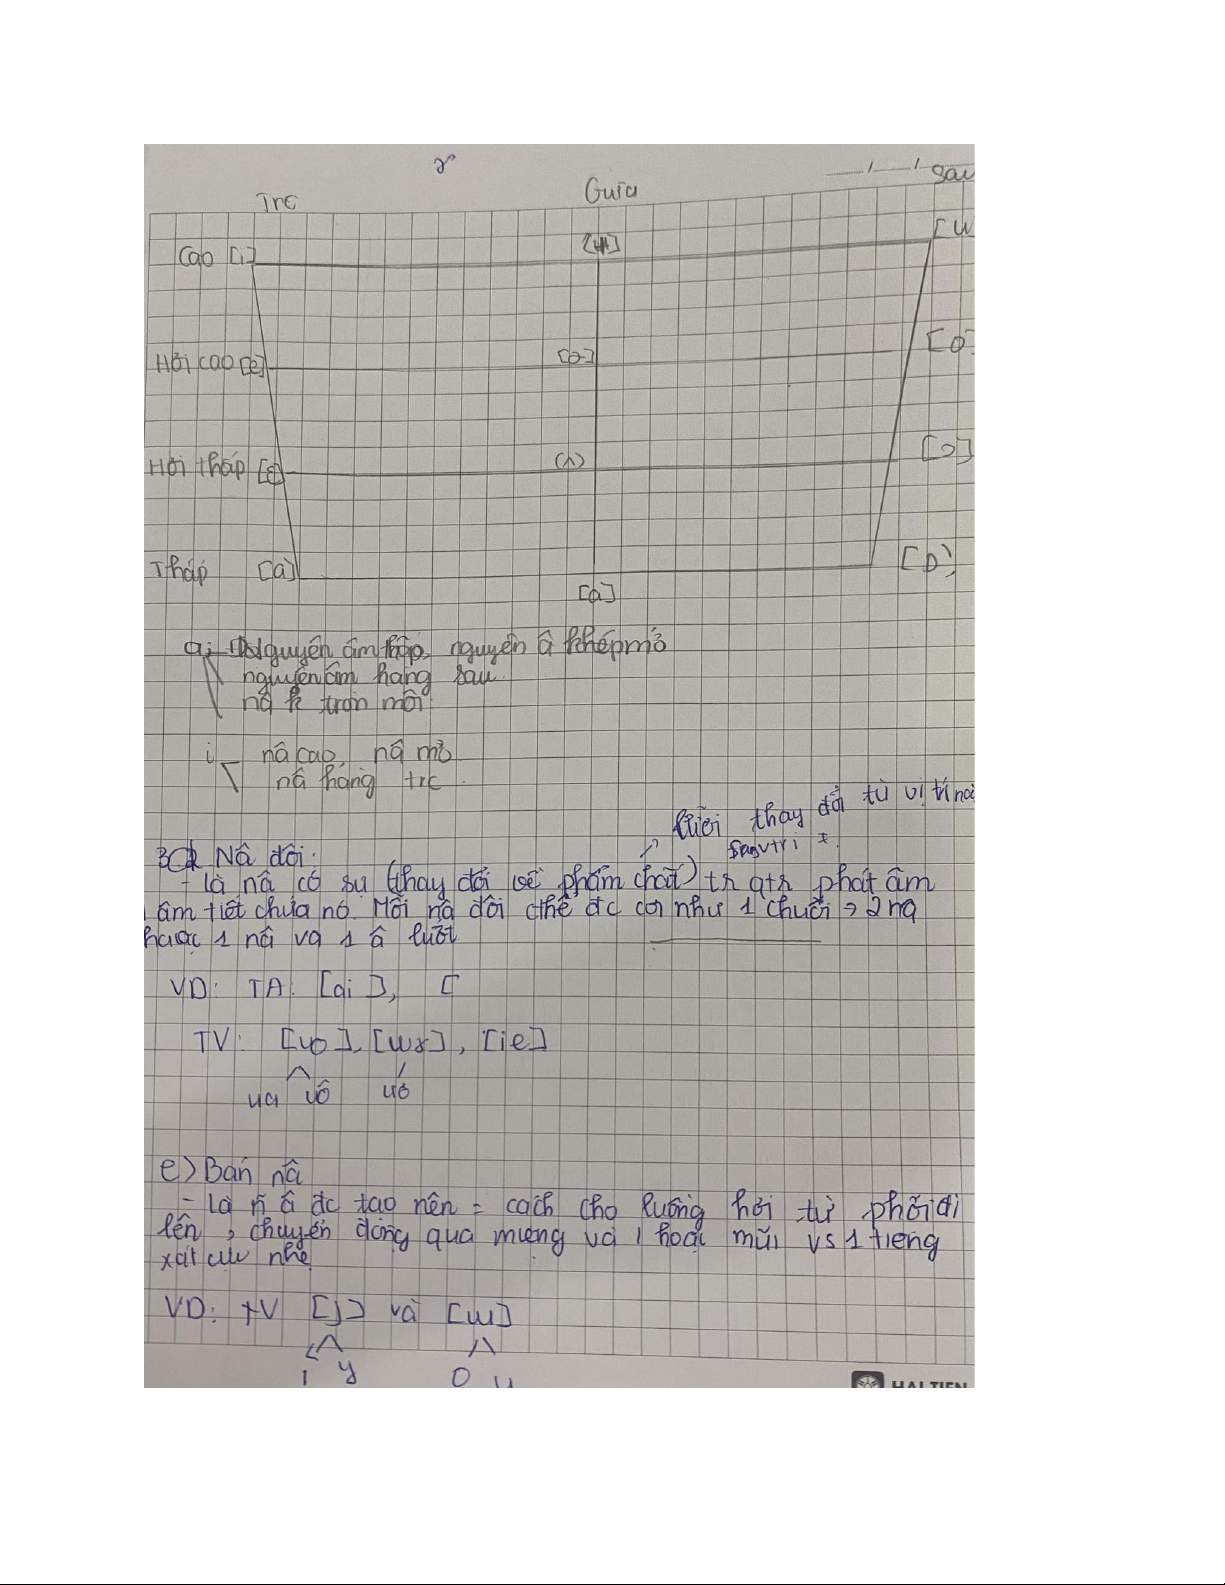 ɤ
Trc Giữa Sau
Cao [i] [ɯ] [u
Hơi cao [e] [ə] [o]
Hơi thấp [ɛ] (ʌ) [ɔ]
Thấp [a] [a] [ɒ]
a: Nguyên âm thấp, nguyên â khép mở
nguyên âm hàng sau
nâ k tròn môi
i nâ cao, nâ mở
nâ hàng trc
lưỡi thay đổi từ vị trí nà
sang vtri ≠
3 Nâ đôi:
- là nâ có sự (thay đổi về phẩm chất) tr qtr phát âm
âm tiết chứa nó. Mỗi nâ đôi cthể đc coi như 1 chuỗi → 2 nâ
hoặc 1 nâ và 1 â lướt
VD: TA: [ai], [
TV: [uo], [ɯɤ], [ie]
ua uô ươ
e) Bán nâ
- Là n â đc tạo nên = cách cho luồng hơi từ phổi đi
lên, chuyển động qua miệng và / hoặc mũi vs 1 tiếng
xát cực nhẹ
VD: TV [j] và [w]
i y o u
HAI TIEN